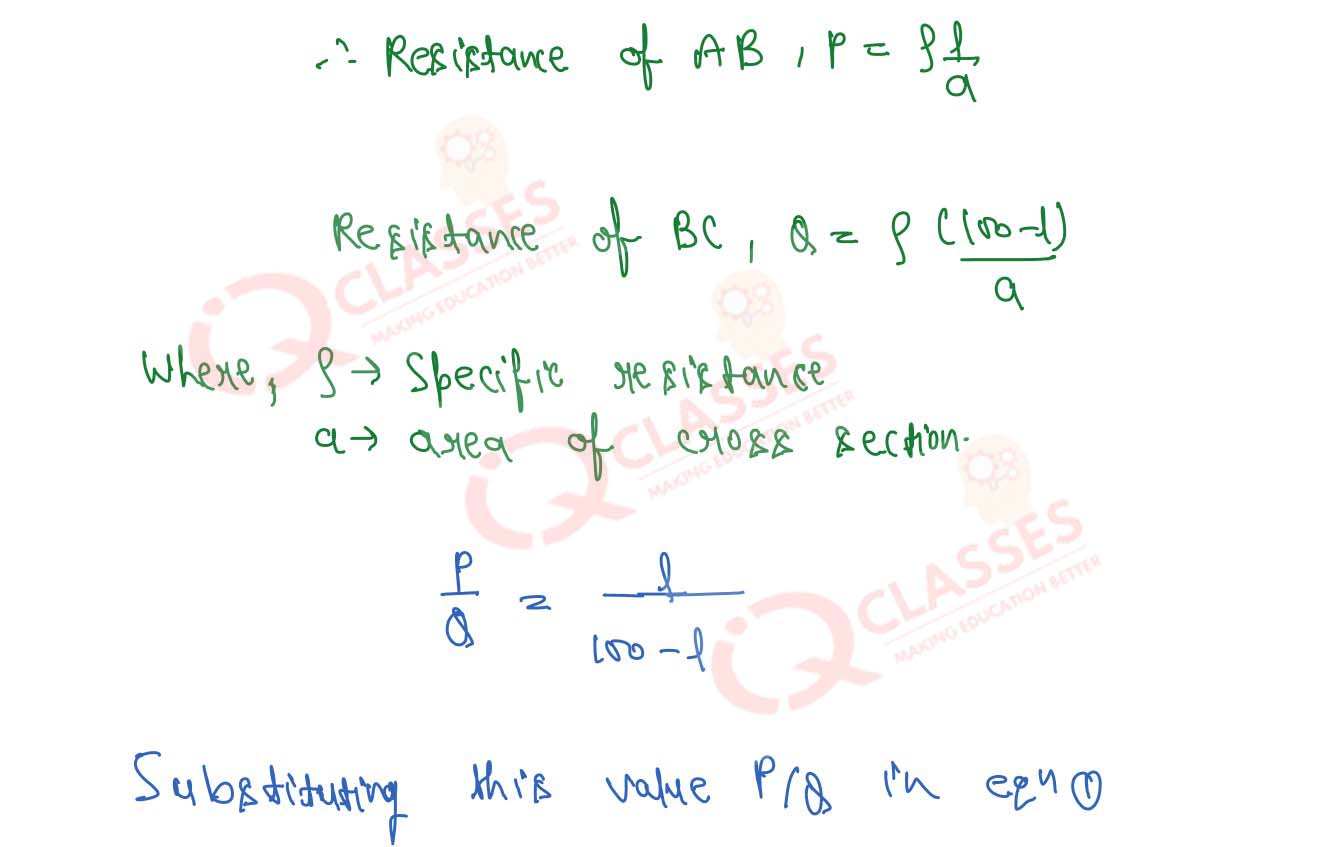 ∴ Resistance of AB, P = ρ l/a
Resistance of BC, Q = ρ (100-l)/a
Where, ρ → Specific resistance
a → area of cross section.
P/Q = l/(100-l)
Substituting this value P/Q in eqn ①
iQ CLASSES
MAKING EDUCATION BETTER
iQ CLASSES
MAKING EDUCATION BETTER
iQ CLASSES
MAKING EDUCATION BETTER